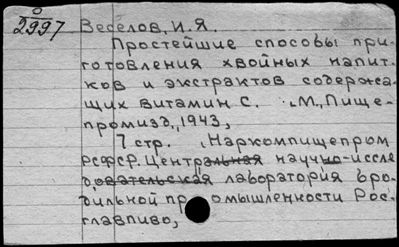 О
2997
Веселов, И. Я.
Простейшие способы при-
готовления хвойных напит-
ков и экстрактов содержа-
щих витамин С. М., Пище-
промизд., 1943,
7 стр. (Наркомпищепром
РСФСР. Центральная научно-иссле
довательская лаборатория бро-
дильной промышленности Рос-
главпиво,